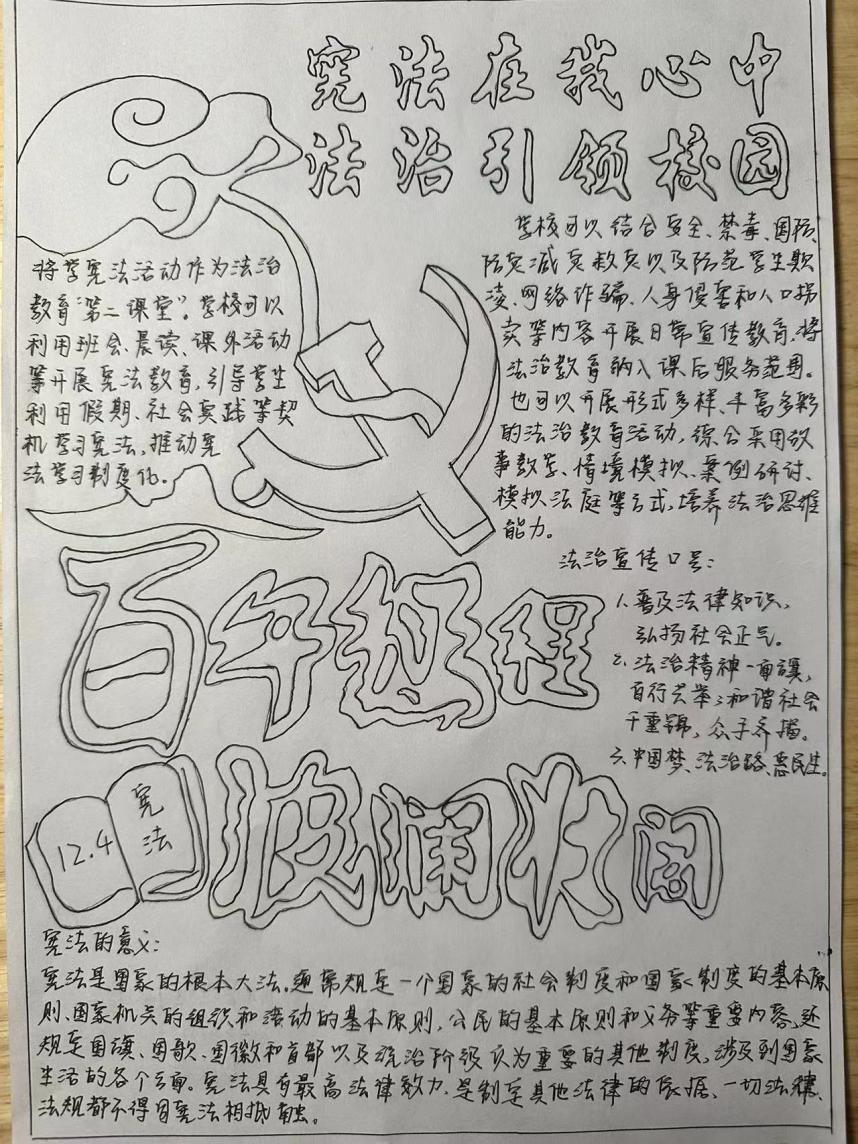 宪法在我心中
法治引领校园
将学宪法活动作为法治
教育"第二课堂"。学校可以
利用班会、晨读、课外活动
等开展宪法教育,引导学生
利用假期、社会实践等契
机学习宪法,推动宪
法学习制度化。
学校可以结合安全、禁毒、国防、
防灾减灾救灾以及防范学生欺
凌、网络诈骗、人身侵害和人口拐
卖等内容开展日常宣传教育,将
法治教育纳入课后服务范围。
也可以开展形式多样、丰富多彩
的法治教育活动,综合采用故
事教学、情境模拟、案例研讨、
模拟法庭等方式,培养法治思维
能力。
法治宣传口号:
1、普及法律知识,
弘扬社会正气。
2、法治精神一面旗,
百行共举;和谐社会
千重锦,众手齐描。
3、中国梦、法治路、惠民生。
百年征程
波澜壮阔
12.4
宪
法
宪法的意义:
宪法是国家的根本大法。通常规定一个国家的社会制度和国家制度的基本原
则、国家机关的组织和活动的基本原则,公民的基本原则和义务等重要内容,还
规定国旗、国歌、国徽和首都以及统治阶级认为重要的其他制度,涉及到国家
生活的各个方面。宪法具有最高法律效力,是制定其他法律的依据,一切法律、
法规都不得同宪法相抵触。